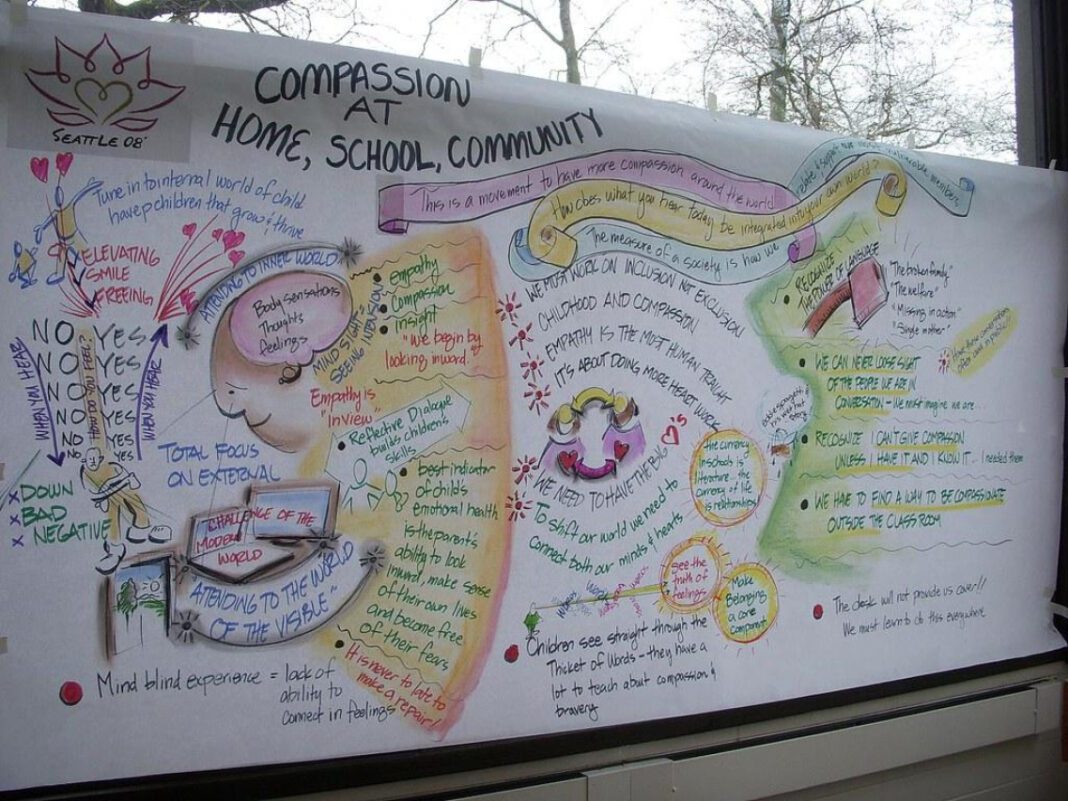 SEATTLE 08'
COMPASSION
AT
HOME, SCHOOL, COMMUNITY
Tune in to internal world of child
have children that grow & thrive
ELEVATING
SMILE
FREEING
NO YES
NO YES
NO YES
NO YES
NO YES
NO YES
WHEN YOU HEAR
HOW DO YOU FEEL?
WHEN YOU HEAR
x DOWN
x BAD
x NEGATIVE
ATTENDING TO INNER WORLD
Body sensations
Thoughts
feelings
MIND SIGHT =
SEEING INTENSION
TOTAL FOCUS
ON EXTERNAL
CHALLENGE OF THE
MODERN
WORLD
ATTENDING TO THE WORLD
OF THE VISIBLE~
Mind blind experience = lack of
ability to
connect in feelings
• empathy
• Compassion
• insight
• "we begin by
looking inward.
Empathy is
"Inview"
• Reflective Dialogue
builds children's
skills
• best indicator
of childs
emotional health
is the parents
ability to look
inward, make sense
of their own lives
and become free
of their fears
• It is never to late to
make a repair!
This is a movement to have more compassion around the world
How does what you hear today be integrated into your own world?
The measure of a society is how we
create & support our most vulnerable members
WE MUST WORK ON INCLUSION NOT EXCLUSION
CHILDHOOD AND COMPASSION
EMPATHY IS THE MOST HUMAN
IT'S ABOUT DOING MORE HEART WORK
WE NEED TO HAVE THE BIG ♥'s
To shift our world we need to
connect both our minds & hearts
the currency
in schools is
literature... the
currency of life
is relationships
see the
truth of
feelings
Make
Belonging
a core
component
WORDS
Children see straight through the
Thicket of Words - they have a
lot to teach about compassion &
bravery
• RECOGNIZE
THE POWER OF LANGUAGE
"The broken family"
"The welfare"
"Missing in action"
"Single mother"
• WE CAN NEVER LOOSE SIGHT
OF THE PEOPLE WE ARE IN
CONVERSATION - We must imagine we are...
• RECOGNIZE I CAN'T GIVE COMPASSION
UNLESS I HAVE IT AND I KNOW IT... I needed them
• WE HAVE TO FIND A WAY TO BE COMPASSIONATE
OUTSIDE THE CLASS ROOM
The desk will not provide us cover!!
We must learn to do this everywhere